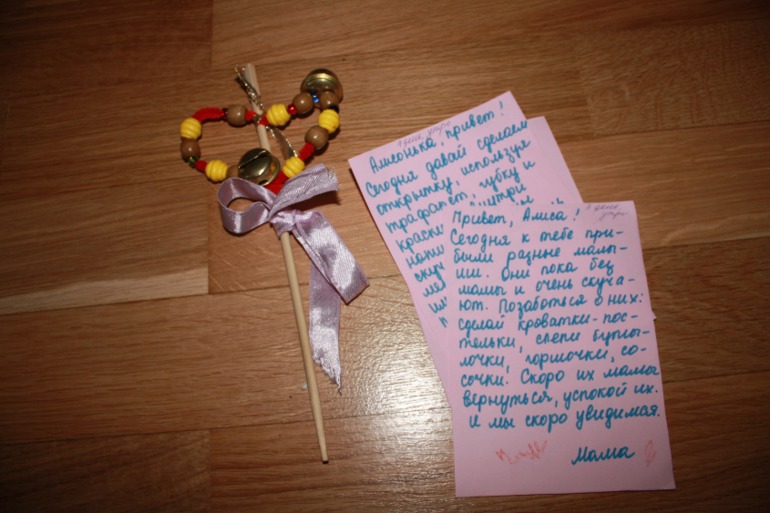 1 день утро
Алисонька, привет!
Сегодня давай сделаем
открытку, используя
трафарет, губку и
внутри
3 день
утро
Привет, Алиса!
Сегодня к тебе при-
были разные малы-
ши. Они пока без
мамы и очень скуча-
ют. Позаботься о них:
сделай кроватки-пос-
тельки, слепи буты-
лочки, горшочки, со-
сочки. Скоро их мамы
вернуться, успокой их.
и мы скоро увидимся.
Мама